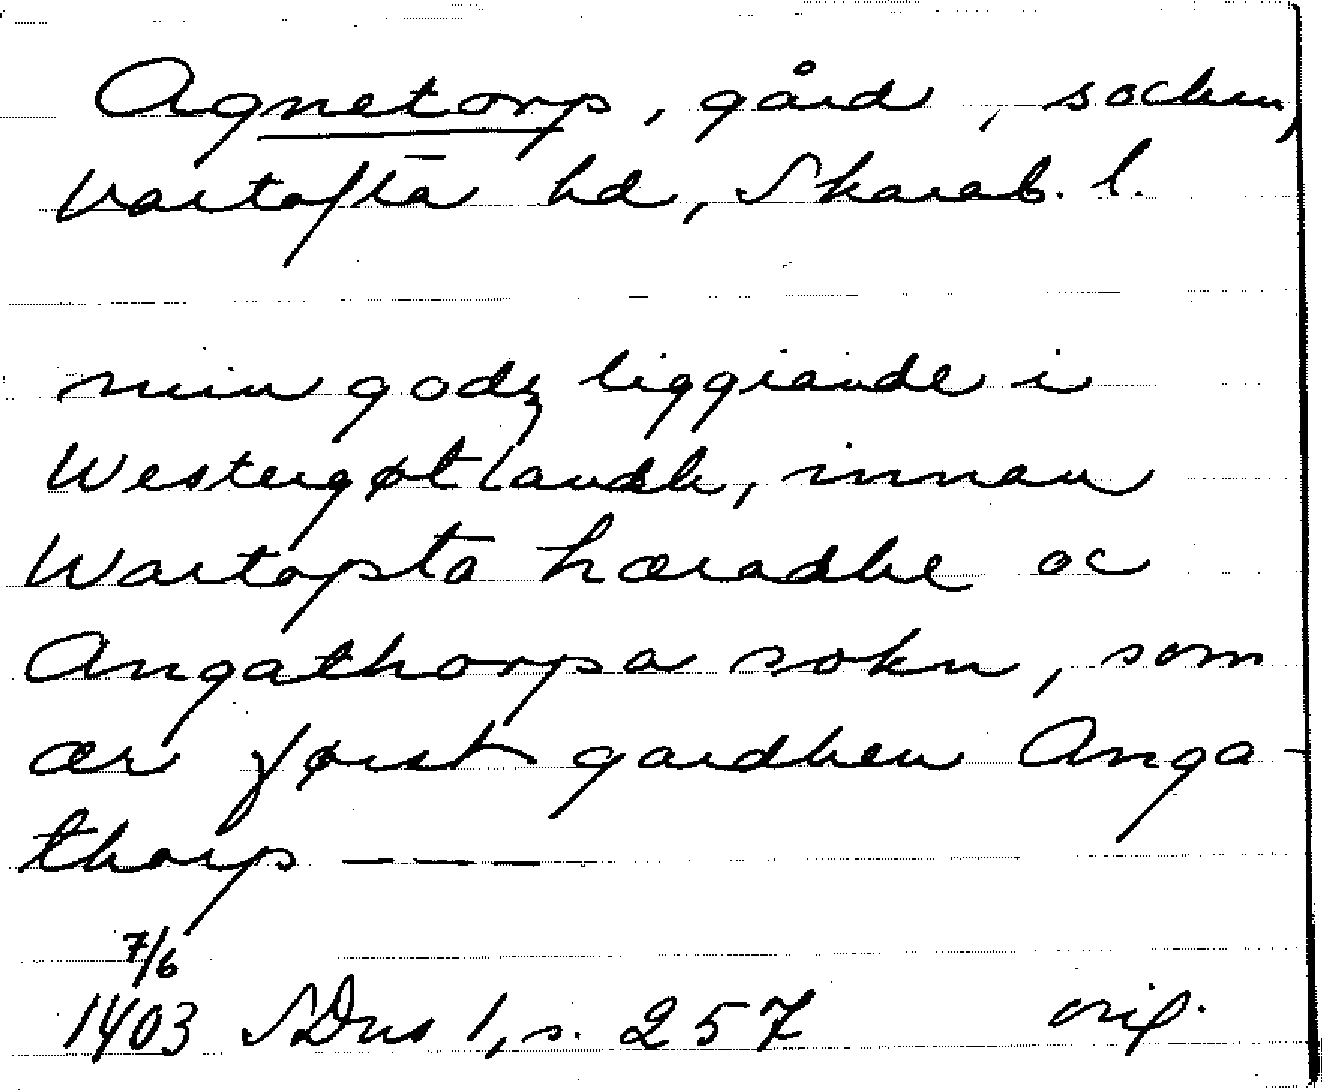 Agnetorp, gård, socken,
Vartofta hd, Skarab. l.
min godz liggiande i
Westergøtlandh, innan
Wartopta hæradhe oc
Angathorpa sokn, som
ær først gardhen Anga-
thorp – – –
7/6
1403 SDns 1, s. 257 orig.